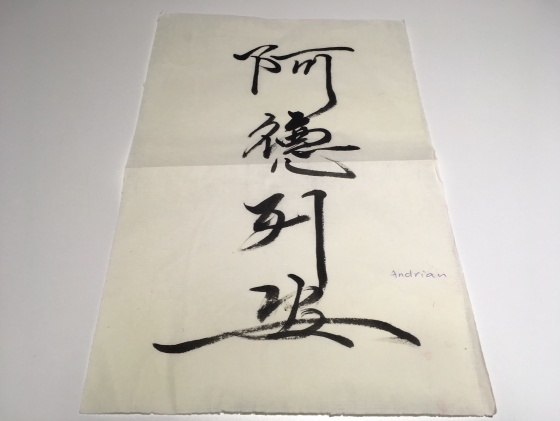 阿德列安
Andrian